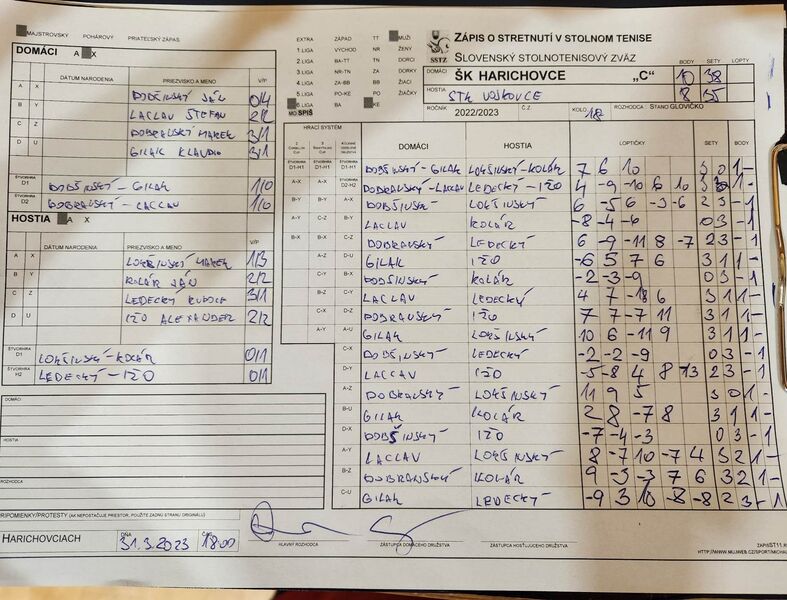 MAJSTROVSKÝ POHÁROVÝ PRIATEĽSKÝ ZÁPAS
EXTRA ZÁPAD TT MUŽI
1.LIGA VÝCHOD NR ŽENY
2.LIGA BA-TT TN DORCI
3.LIGA NR-TN ZA DORKY
4.LIGA ZA-BB BB ŽIACI
5.LIGA PO-KE PO ŽIAČKY
6.LIGA BA KE
MO SPIŠ
SSTZ
ZÁPIS O STRETNUTÍ V STOLNOM TENISE
SLOVENSKÝ STOLNOTENISOVÝ ZVÄZ
BODY SETY LOPTY
DOMÁCI ŠK HARICHOVCE „C" 10 38
HOSTIA STK VOJKOVCE 8 35
ROČNÍK 2022/2023 Č.Z. KOLO 18 ROZHODCA : STANO GLOVIČKO
DOMÁCI A X
DÁTUM NARODENIA PRIEZVISKO A MENO V/P
A X DOBŠINSKÝ JÁN 0/4
B Y LACLAV ŠTEFAN 2/2
C Z DOBRANSKÝ MAREK 3/1
D U GILAK KLAUDIO 3/1
ŠTVORHRA D1 DOBŠINSKÝ - GILAK 1/0
ŠTVORHRA D2 DOBRANSKÝ - LACLAV 1/0
HOSTIA A X
DÁTUM NARODENIA PRIEZVISKO A MENO V/P
A X LOKŠINSKÝ MAREK 1/3
B Y KOLÁR JÁN 2/2
C Z LEDECKÝ RUDOLF 3/1
D U IŽO ALEXANDER 2/2
ŠTVORHRA D1 LOKŠINSKÝ - KOLÁR 0/1
ŠTVORHRA H2 LEDECKÝ - IŽO 0/1
HRACÍ SYSTÉM DOMÁCI HOSTIA LOPTIČKY SETY BODY
DOBŠINSKÝ - GILAK LOKŠINSKÝ - KOLÁR 7 6 10 3 0 1 -
DOBRANSKÝ - LACLAV LEDECKÝ - IŽO 4 -9 -10 6 10 3 2 1 -
DOBŠINSKÝ LOKŠINSKÝ 6 -5 6 -3 -6 2 3 - 1
LACLAV KOLÁR -8 -4 -6 0 3 - 1
DOBRANSKÝ LEDECKÝ 6 -9 -11 8 -7 2 3 - 1
GILAK IŽO -6 5 7 6 3 1 1 -
DOBŠINSKÝ KOLÁR -2 -3 -9 0 3 - 1
LACLAV LEDECKÝ 4 7 -18 6 3 1 1 -
DOBRANSKÝ IŽO 7 7 -7 11 3 1 1 -
GILAK LOKŠINSKÝ 10 6 -11 9 3 1 1 -
C-X DOBŠINSKÝ LEDECKÝ -2 -2 -9 0 3 - 1
D-Y LACLAV IŽO -5 -8 4 8 -13 2 3 - 1
A-Z DOBRANSKÝ LOKŠINSKÝ 11 9 5 3 0 1 -
B-U GILAK KOLÁR 2 8 -7 8 3 1 1 -
D-X DOBŠINSKÝ IŽO -7 -4 -3 0 3 - 1
A-Y LACLAV LOKŠINSKÝ 8 -7 10 -7 4 3 2 1 -
B-Z DOBRANSKÝ KOLÁR 9 -3 -3 7 6 3 2 1 -
C-U GILAK LEDECKÝ -9 3 10 -8 -8 2 3 - 1
DOMÁCI
HOSTIA
ROZHODCA
PRIPOMIENKY/PROTESTY (AK NEPOSTAČUJE PRIESTOR, POUŽITE ZADNÚ STRANU ORIGINÁLU)
HARICHOVCIACH DŇA 31.3.2023 ČAS 18:00
HLAVNÝ ROZHODCA ZÁSTUPCA DOMÁCEHO DRUŽSTVA ZÁSTUPCA HOSŤUJÚCEHO DRUŽSTVA